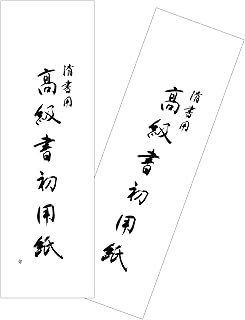 清書用
高級書初用紙
清書用
高級書初用紙